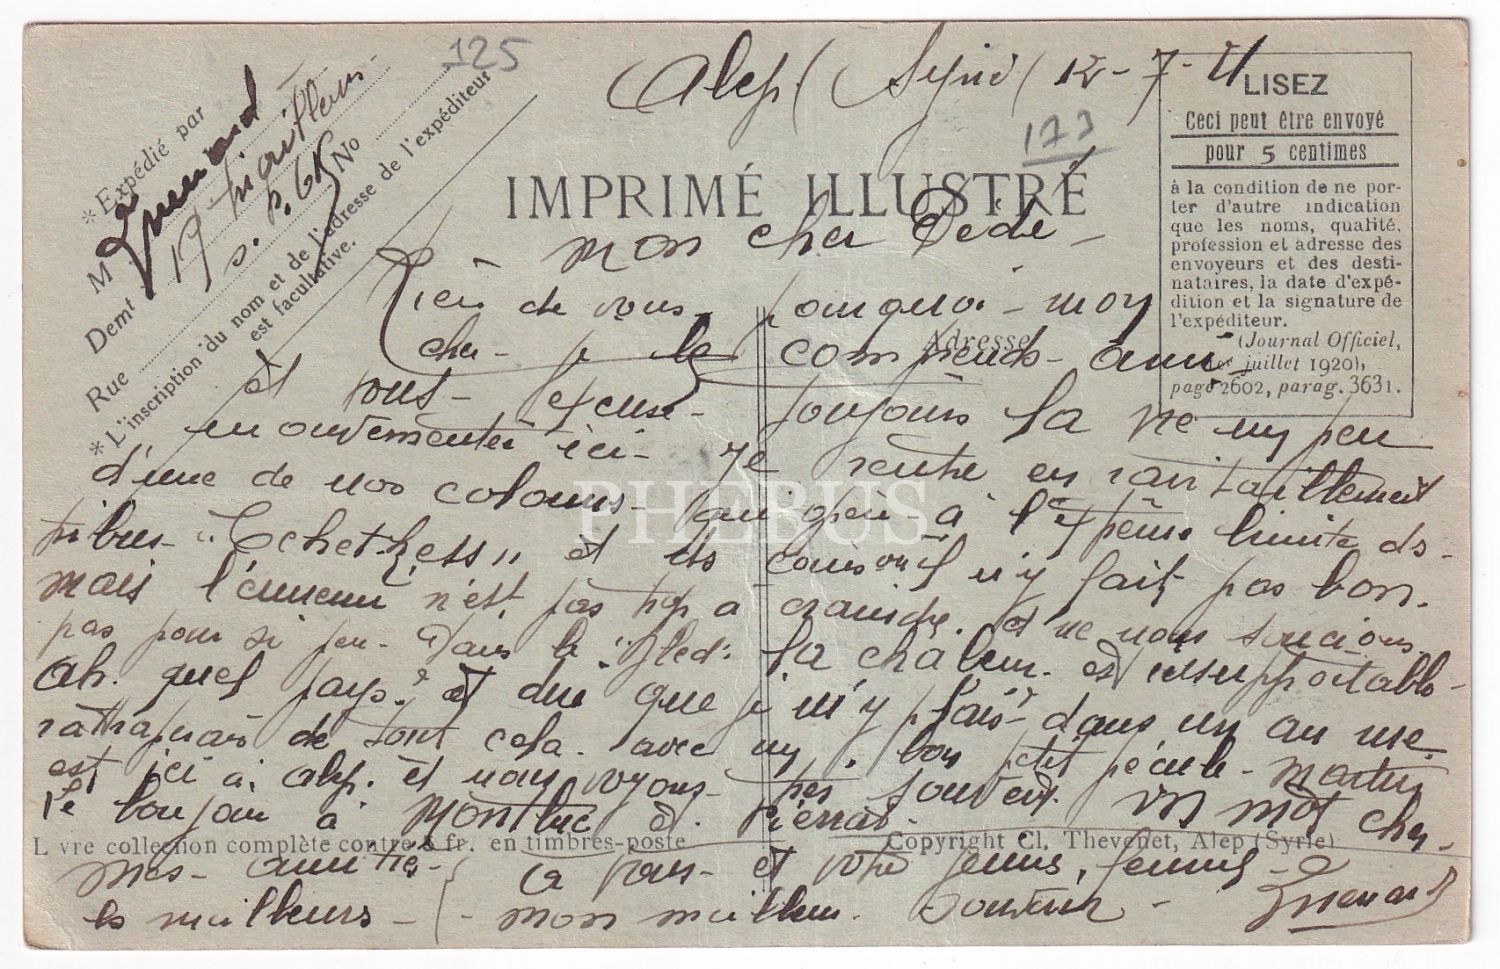 125
Alep (Syrie) 12-7-21
173
* Expédié par
M
Demt 19e
Rue S. P. 615 No
* L'inscription du nom et de l'adresse de l'expéditeur
est facultative.
LISEZ
Ceci peut être envoyé
pour 5 centimes
à la condition de ne por-
ter d'autre indication
que les noms, qualité,
profession et adresse des
envoyeurs et des desti-
nataires, la date d'expé-
dition et la signature de
l'expéditeur.
(Journal Officiel,
juillet 1920),
page 2602, parag. 3631.
IMPRIMÉ ILLUSTRÉ
- Mon cher Dédé -
Rien de vous, pourquoi - mon
Adresse
cher - je le comprends - ami
et vous - excuse - toujours la vie un peu
mouvementée ici - je rentre en ravitaillement
d'une de nos colonnes - à l'extrême limite des
tribus - "Tchet-kess" et les il n'y fait pas bon.
mais l'ennemi n'est pas trop à craindre. et ne nous soucions
pas pour si peu. Dans le "Bled" la chaleur est insupportable -
Ah. quel pays. et dire que j'm'y plais dans un an me
rattraperais de tout cela. avec un bon petit pécule - Martin
est ici à Alep. et nous voyons très souvent. Un mot cher
le bonjour à Montluc et Pierras.
PHEBUS
L vre collection complète contre 6 fr. en timbres-poste
Copyright Cl. Thevenet, Alep (Syrie)
Mes - amitiés - à vous - et votre jeune femme -
les meilleurs - mon meilleur souvenir -